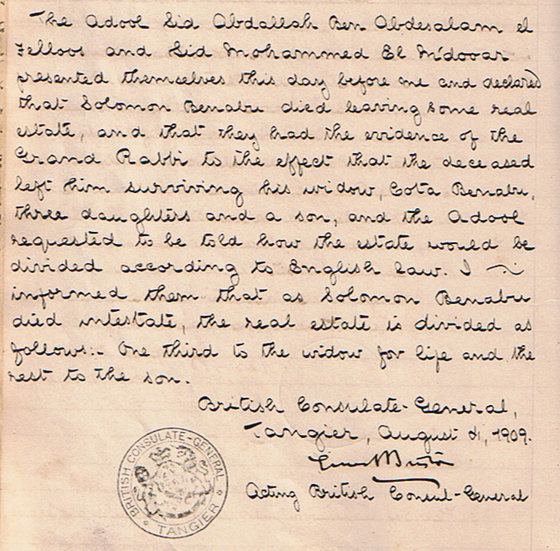 The Adool Sid Abdallah Ben Abdesalam el
Felloos and Sid Mohammed El M'dooar
presented themselves this day before me and declared
that Solomon Benabu died leaving some real
estate, and that they had the evidence of the
Grand Rabbi to the effect that the deceased
left him surviving his widow, Cota Benabu,
three daughters and a son, and the Adool
requested to be told how the estate would be
divided according to English law. I ~
informed them that as Solomon Benabu
died intestate, the real estate is divided as
follows:- One third to the widow for life and the
rest to the son.
British Consulate-General,
Tangier, August 4, 1909.
Acting British Consul-General
BRITISH CONSULATE-GENERAL
TANGIER